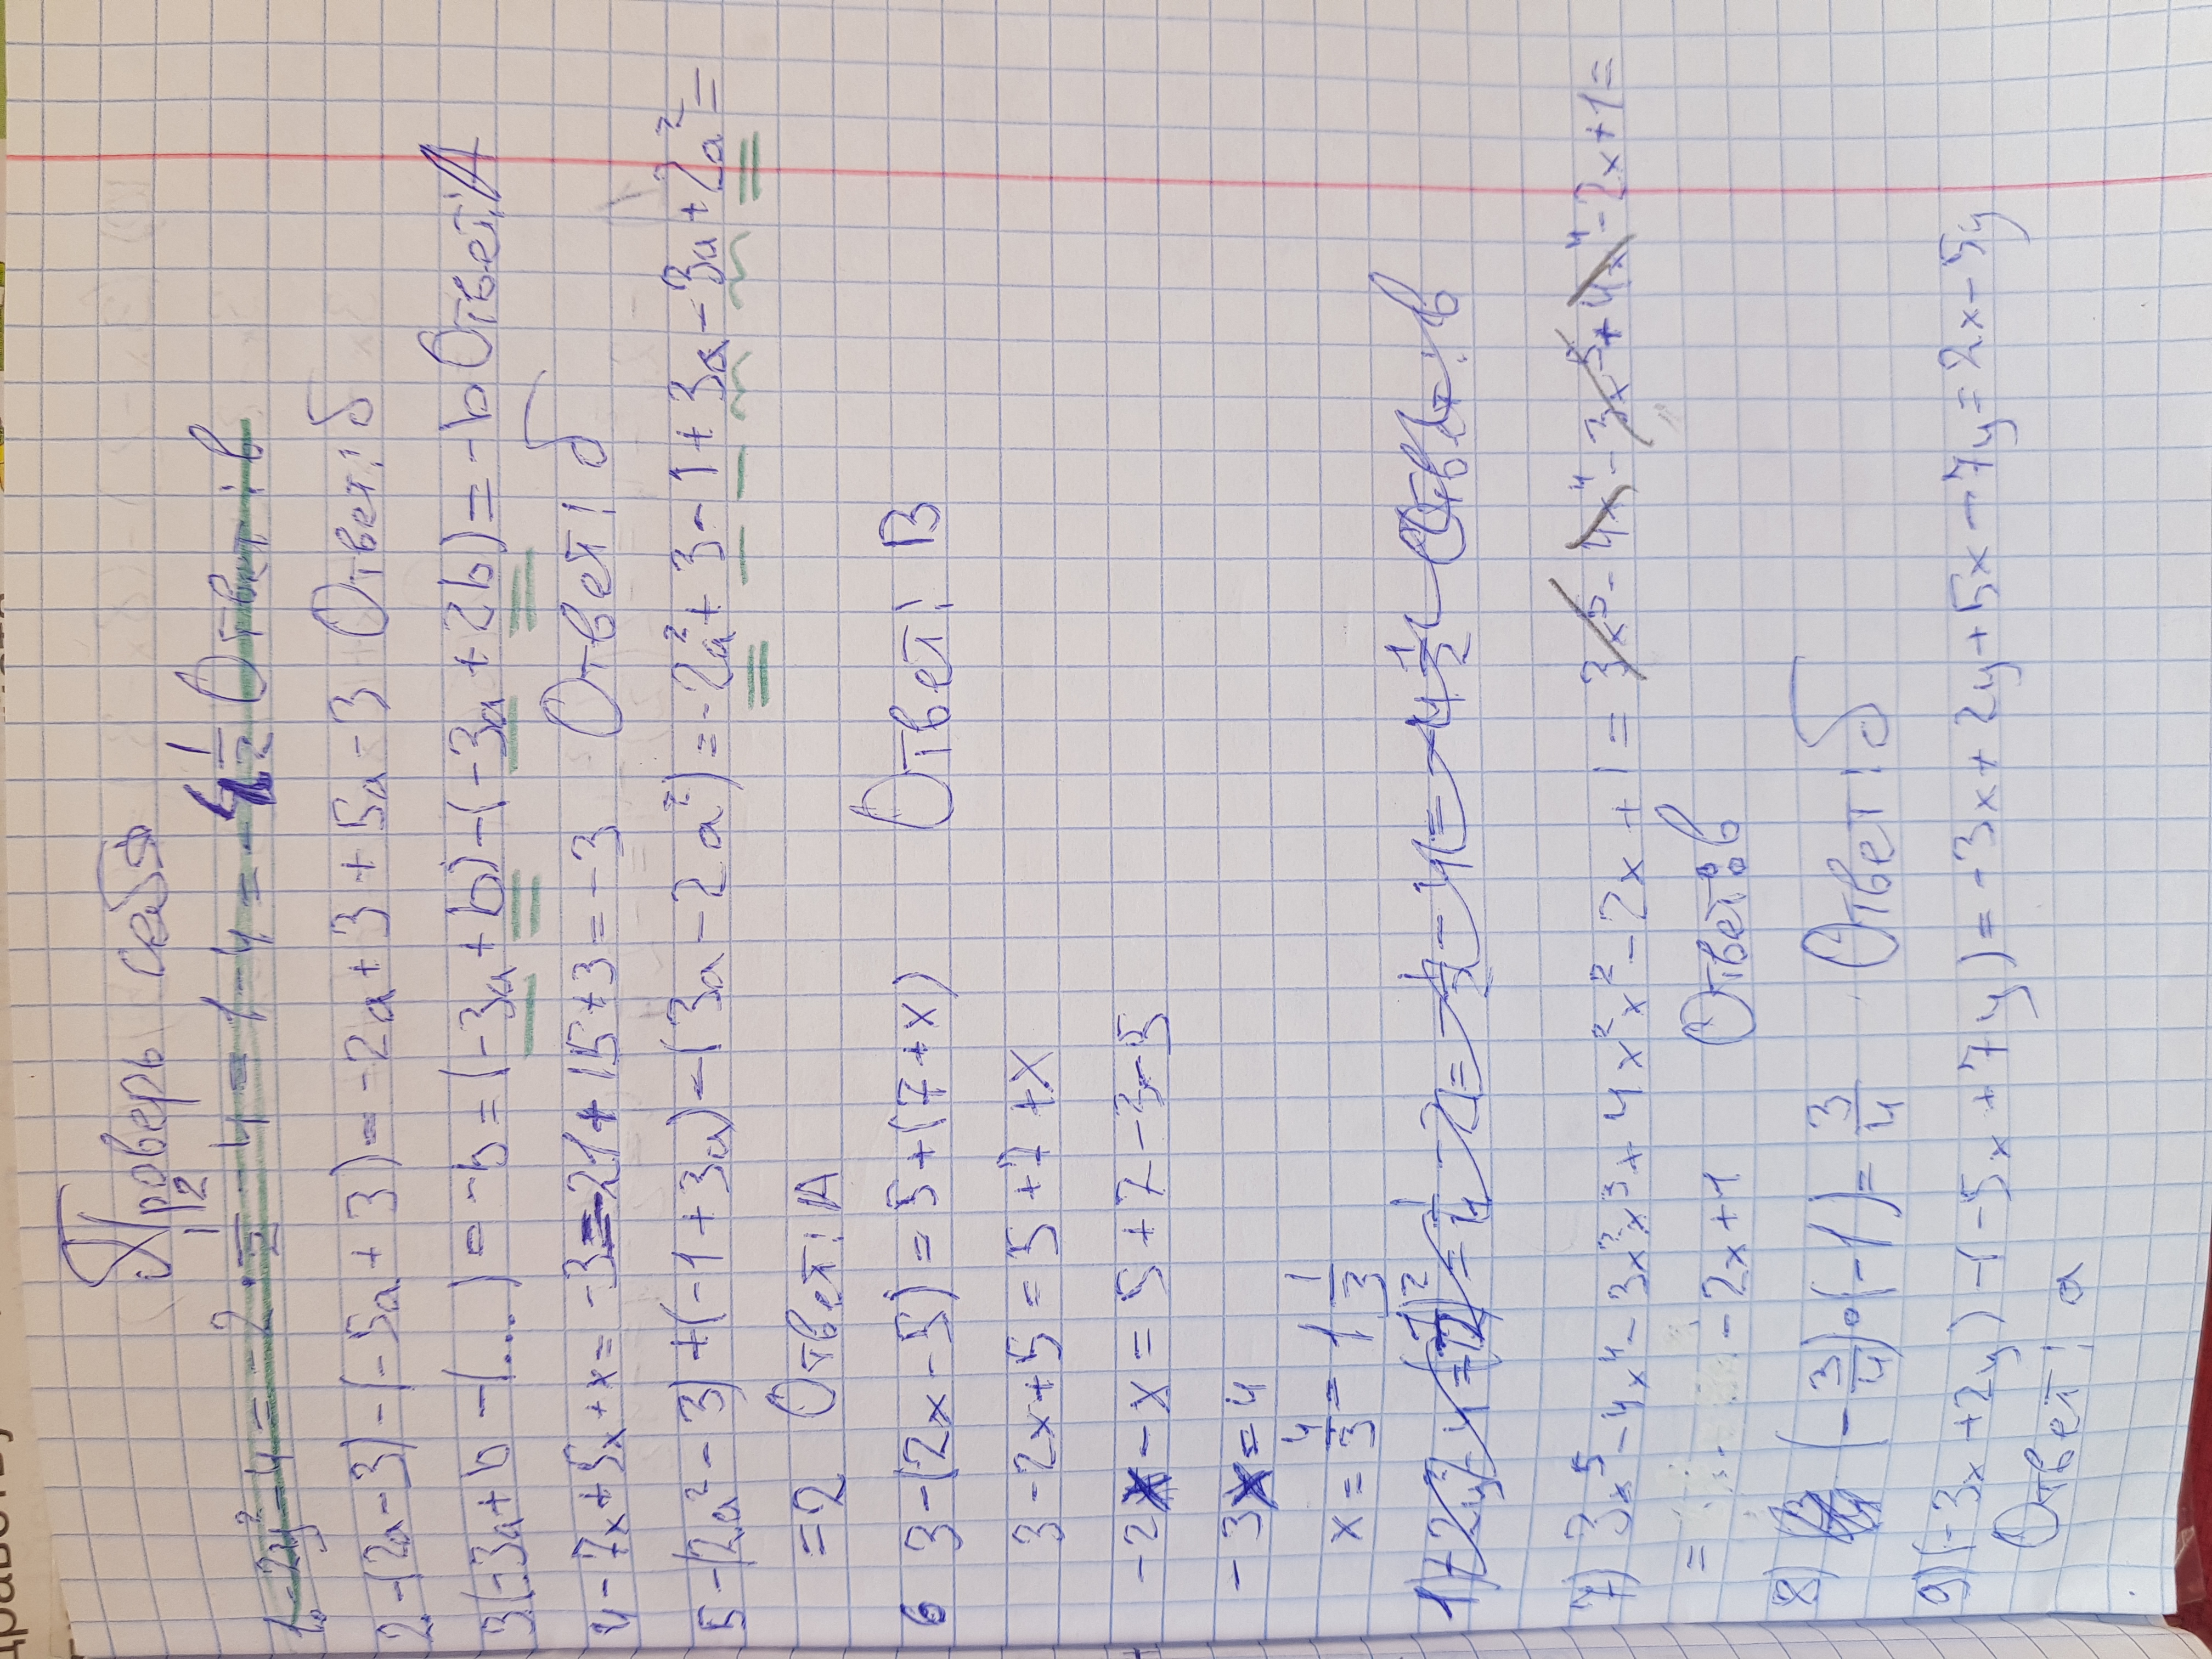 Проверь себя
1 2
1. -2y² - 4 = -2 · - 4 = -1 - 4 = - 4 1/2 Ответ: в
2. -(2a-3)-(-5a+3)=-2a+3+5a-3 Ответ: б
3(-3a+b-(....)=-b=(-3a+b)-(-3a+2b)=-b Ответ: А
4 -7x+5x+x=-3=-21+15+3=-3 Ответ: б
5 -(2a²-3)+(-1+3a)-(3a-2a²)=-2a²+3-1+3a-3a+2a²=
=2 Ответ: А
6 3-(2x-5)=5+(7+x) Ответ: В
3-2x+5=5+7+x
-2x-x=5+7-3-5
-3x=4
x=4/3=-1 1/3
7) 3x⁵-4x⁴-3x²x³+4x²x²-2x+1=3x⁵-4x⁴-3x⁵+4x⁴-2x+1=
= -2x+1 Ответ: в
8) (-3/4)·(-1)=3/4 Ответ: б
9)(-3x+2y)-(-5x+7y)=-3x+2y+5x-7y=2x-5y
Ответ: а